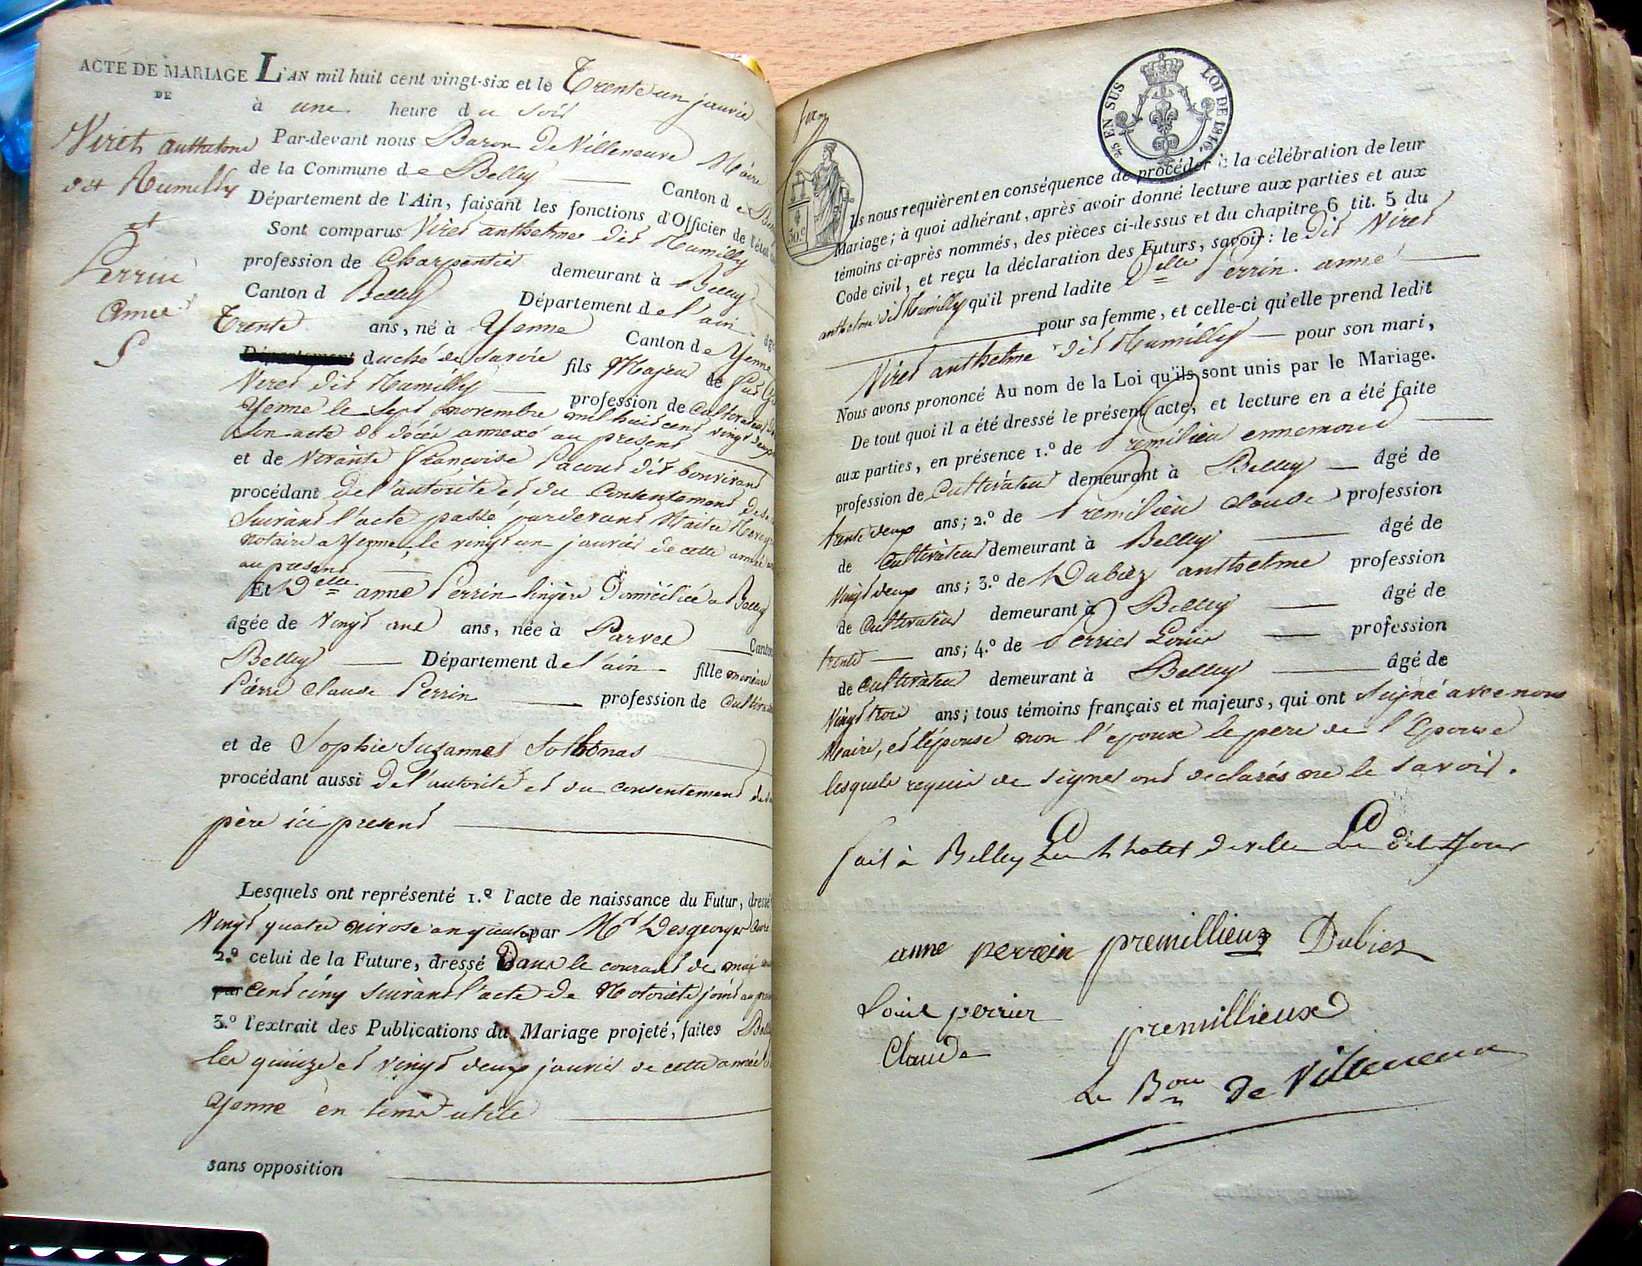 ACTE DE MARIAGE
DE
Viret anthelme
dit Rumilly
et
Perrin
anne
L'AN mil huit cent vingt-six et le Trente un janvier
à une heure du soir
Par-devant nous Baron de Villeneuve Maire
de la Commune de Belley Canton de
Département de l'Ain, faisant les fonctions d'Officier de l'état
Sont comparus Viret anthelme dit Rumilly
profession de Charpentier demeurant à Belley
Canton d Belley Département de l'ain
Trente ans, né à Yenne Canton de Yenne
Département duché de Savoie fils Majeur de
Viret dit Rumilly profession de Cultivateur
Yenne le Sept novembre mil huit cent vingt deux
son acte de décès annexé au présent
et de vivante francoise Pacout dit bonvivant
procédant de l'autorité et du Consentement de
Suivant l'acte passé pardevant Maitre
notaire a Yenne le vingt un janvier de cette année
au présent
Et Delle anne Perrin lingère Domiciliée a Belley
âgée de vingt une ans, née à Parves Canton
Belley Département de l'ain fille mineure
Pierre claude Perrin profession de Cultivateur
et de Sophie Suzanne
procédant aussi de l'autorité et du consentement de
père ici présent
Lesquels ont représenté 1.º l'acte de naissance du Futur, dressé
Vingt quatre nivose an quatre par Mr Desgeorges
2.º celui de la Future, dressé Dans le courant de mai
par cent cinq suivant l'acte de Notoriété joint au
3.º l'extrait des Publications du Mariage projeté, faites
les quinze et vingt deux janvier de cette année
Yenne en tems utile
sans opposition
25 EN SUS LOI DE 1816.
Ils nous requièrent en conséquence de procéder à la célébration de leur
Mariage; à quoi adhérant, après avoir donné lecture aux parties et aux
témoins ci-après nommés, des pièces ci-dessus et du chapitre 6 tit. 5 du
Code civil, et reçu la déclaration des Futurs, savoir: le dit Viret
anthelme dit Rumilly qu'il prend ladite Delle Perrin anne
pour sa femme, et celle-ci qu'elle prend ledit
Viret anthelme dit Rumilly pour son mari,
Nous avons prononcé Au nom de la Loi qu'ils sont unis par le Mariage.
De tout quoi il a été dressé le présent acte, et lecture en a été faite
aux parties, en présence 1.º de Premilieu ennemond
profession de Cultivateur demeurant à Belley âgé de
trente deux ans; 2.º de Premilieu claude profession
de Cultivateur demeurant à Belley âgé de
Vingt deux ans; 3.º de Dubiez anthelme profession
de Cultivateur demeurant à Belley âgé de
trente ans; 4.º de Perrier Louis profession
de Cultivateur demeurant à Belley âgé de
Vingt trois ans; tous témoins français et majeurs, qui ont Signé avec nous
Maire, et l'épouse non l'époux le pere de l'Epouse
lesquels requis de signer ont declarés ne le savoir.
fait à Belley En l'hotel de ville Le dit Jour
anne perrein premillieux Dubiez
Louis perrier premillieux
Claude
Le Bon de Villeneuve